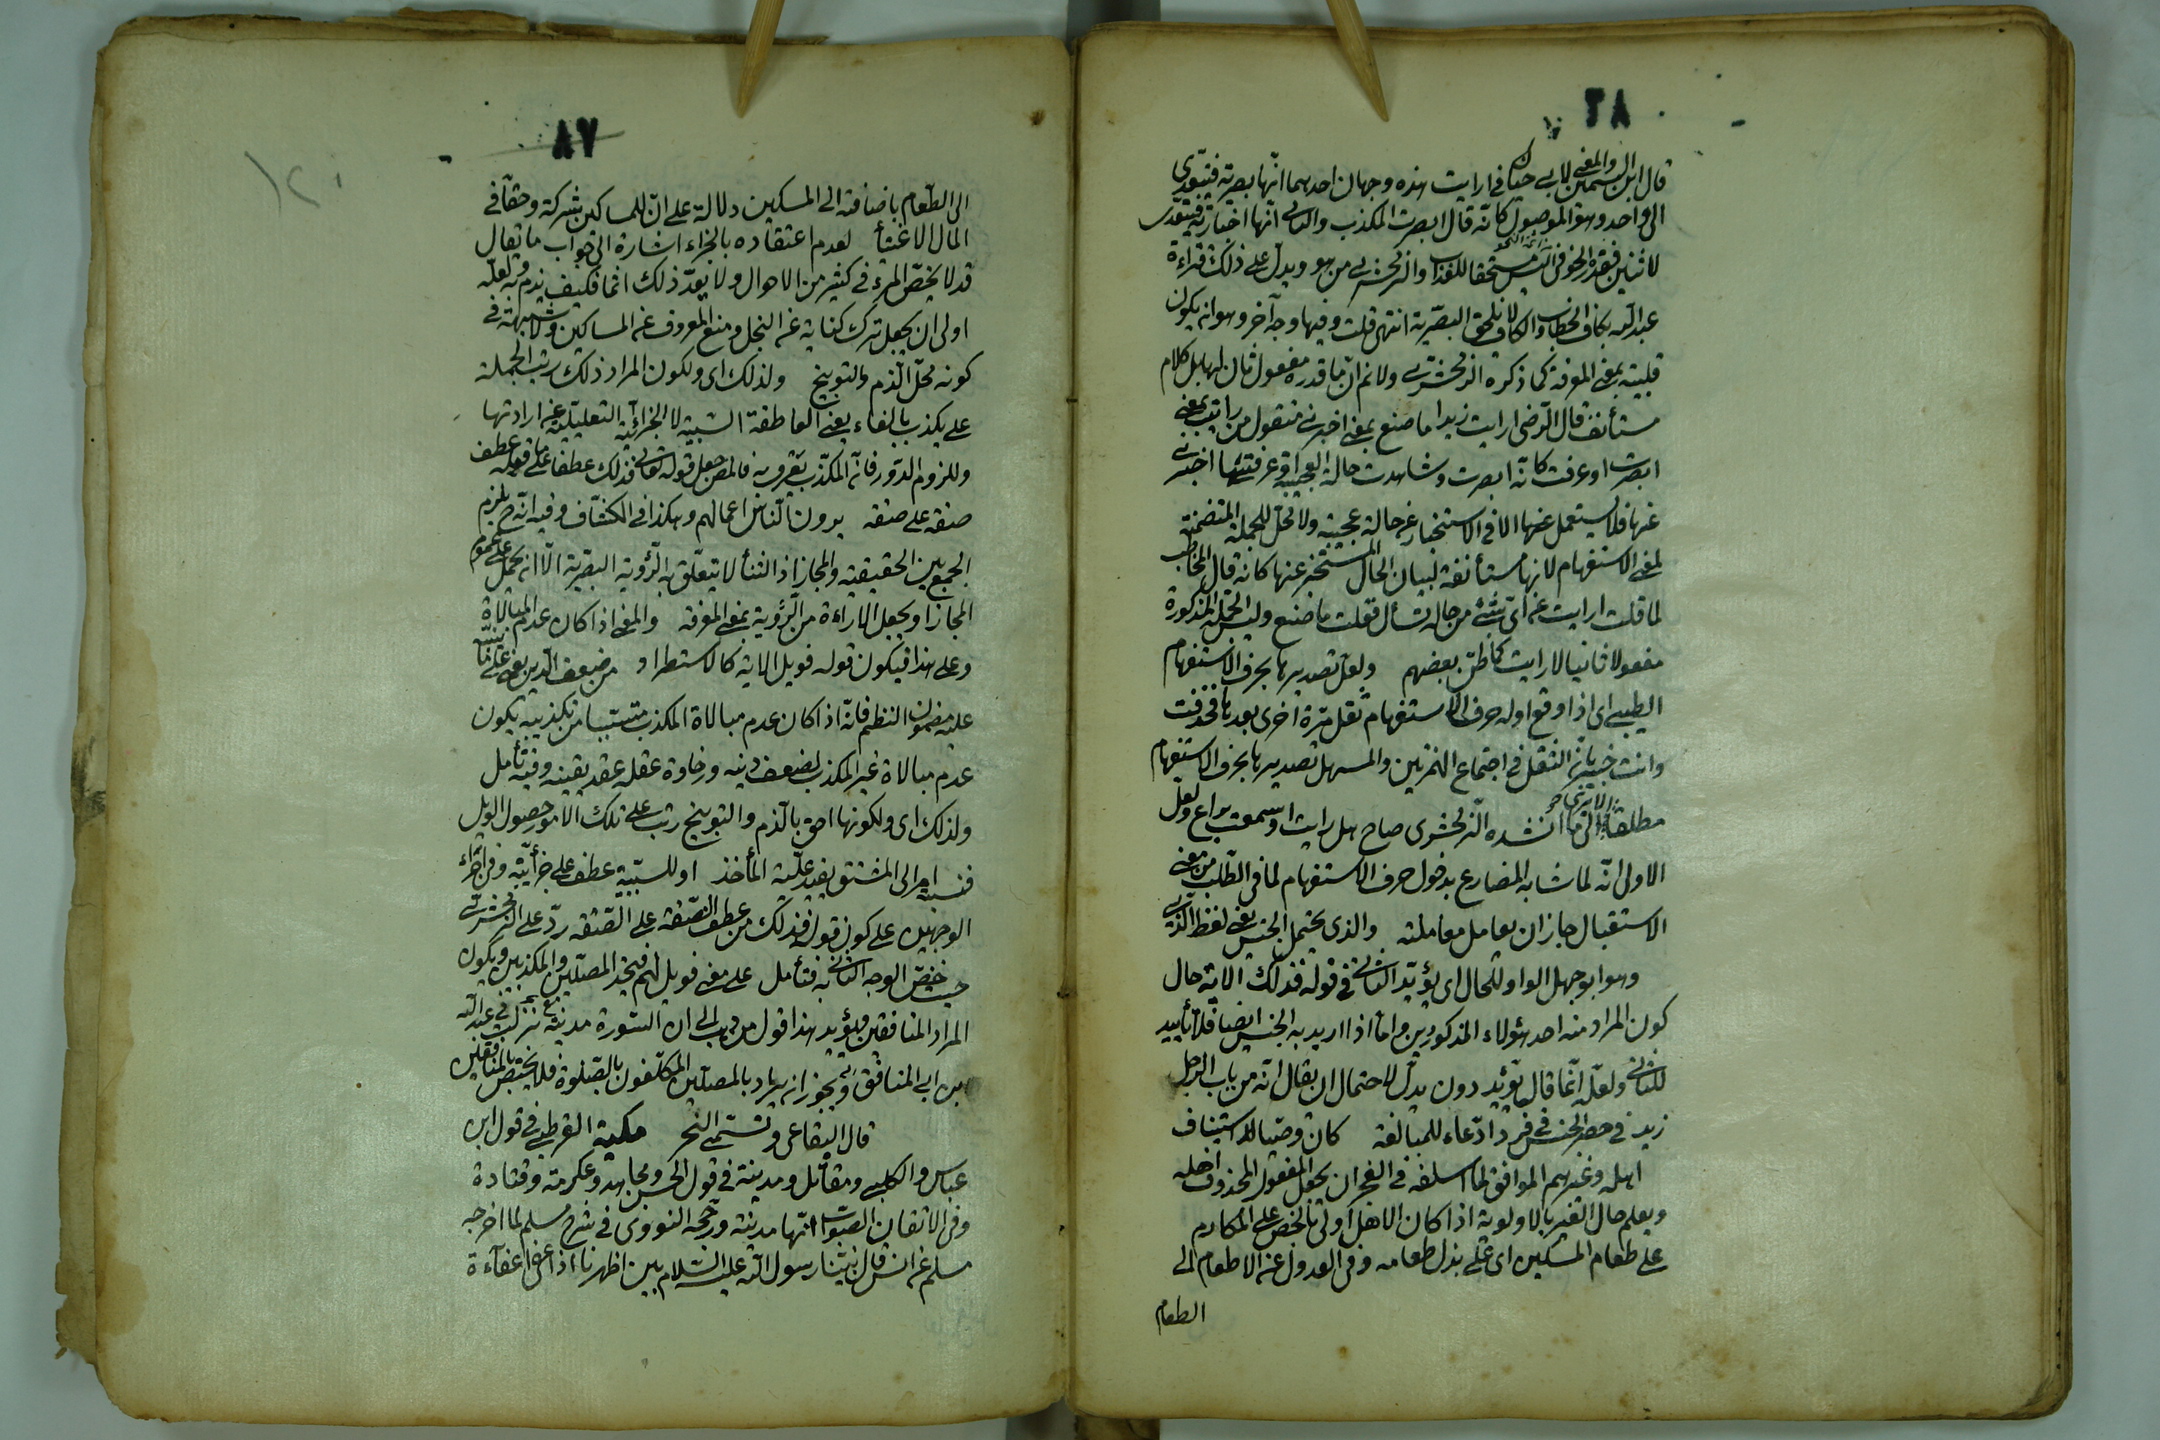 ٨٦
قال ابن السمين والمعنى لابي حيان في ارايت هذه وجهان احدهما انها بصرية فتتعدى
الى واحد وهو الموصول كانه قال ابصرت المكذب والثاني انها اخبارية فتتعدى
لاثنين فقدره الحوفي اليس مستحقا للعذاب والزمخشري من هو ويدل على ذلك قراءة
عبد الله بكاف الخطاب والكاف لا تلحق البصرية انتهى قلت وفيها وجه آخر وهو انه يكون
قلبية بمعنى المعرفة كما ذكره الزمخشري ولا نم ان ما قدره مفعول ثان لها بل كلام
مستأنف قال الرضى ارايت زيدا ما صنع بمعنى اخبرني منقول من رايت بمعنى
ابصرت او عرفت كانه ابصرت وشاهدت حالة العجيبة او عرفتها اخبرني
عنها فلا يستعمل عنها الا في الاستخبار عن حالة عجيبة ولا محل للجملة المتضمنة
لمعنى الاستفهام لانها مستأنفة لبيان الحال المستخبر عنها كانه قال المخاطب
لما قلت ارايت عن اي شئ من حاله تسأل فقلت ما صنع وليس الجملة المذكورة
مفعولا ثانيا لارايت كما ظن بعضهم ولعل تصديرها بحرف الاستفهام
الطيبي اي اذا وقع اوله حرف الاستفهام ثقل مرة اخرى بعدها فحذفت
وانت خبير بان الثقل في اجتماع الهمزتين والمسهل تصديرها بحرف الاستفهام
مطلقا الا ترى الى ما انشده الزمخشري صاح هل رايت او سمعت براع ولعل
الاولى انه لما شابه المضارع بدخول حرف الاستفهام لما في الطلب من معنى
الاستقبال جاز ان يعامل معاملته والذي يحتمل الجنس يعني لفظ الذي
وهو ابو جهل الواو للحال اي يؤيد الثاني في قوله فذلك الاية حال
كون المراد منه احد هؤلاء المذكورين واما اذا اريد به الجنس ايضا فلا تأييد
للثاني ولعله انما قال يؤيد دون يدل لاحتمال ان يقال انه من باب الرجل
زيد في حصر الجنس في فرد ادعاء للمبالغة كان وصيا الاستيناف
اهله وغيرهم الموافق لما اسلفه في الفجر ان يجعل المفعول المحذوف اهله
ويعلم حال الغير بالاولوية اذا كان الاهل اولى بالحض على المكارم
على طعام المسكين اي على بذل طعامه وفي العدول عن الاطعام الى
الطعام
٨٧
١٢٠
الى الطعام باضافته الى المسكين دلالة على ان للمساكين شركة وحقا في
المال الاغنياء لعدم اعتقاده بالجزاء اشارة الى جواب ما يقال
قد لا يحض المرء في كثير من الاحوال ولا يعد ذلك اثما فكيف يذم به ولعله
اولى ان يجعل ترك كناية عن البخل ومنع المعروف عن المساكين ولا شبهة في
كونه محل الذم والتوبيخ ولذلك اي ولكون المراد ذلك رتب الجملة
على يكذب بالفاء يعني العاطفة السببية لا الجزائية التعليلية عن ارادتها
وللزوم الدور فانه المكذب بقرينة فالمص جعل قوله تعالى فذلك عطفا على قوله عطف
صفة على صفة يرون الناس اعمالهم وهكذا في الكشاف وفيه انه ح يلزم
الجمع بين الحقيقة والمجاز اذ الثناء لا يتعلق به الرؤية البصرية الا انه يحمل على عموم
المجاز او يجعل الاراءة من الرؤية بمعنى المعرفة والمعنى اذا كان عدم المبالاة
وعلى هذا فيكون قوله فويل الاية كالاستطراد من ضعف الدين يعني على ما
عليه مضمون النظم فانه اذا كان عدم مبالاة المكذب متسببا من تكذيبه يكون
عدم مبالاة غير المكذب لضعف دينه ورخاوة عقله عقد يقينه وفيه تأمل
ولذلك اي ولكونها احق بالذم والتوبيخ رتب على تلك الامور حصول الويل
فنسبة امر الى المشتق يفيد علية المأخذ او للسببية عطف على جزائية وفي اجراء
الوجهين على كون قوله فذلك من عطف الصفة على الصفة رد على الزمخشري
حيث خص الوجه الثاني به فتأمل على معنى فويل لهم فيتحد المصلين والمكذبين ويكون
المراد المنافقين ويؤيد هذا قول من ذهب الى ان السورة مدنية نزلت في عبد الله
بن ابي المنافق ويجوز ان يراد بالمصلين المكلفون بالصلوة فلا يختص بالمنافقين
قال البقاعي وتسمى النحر مكية القرطبي في قول ابن
عباس والكلبي ومقاتل ومدنية في قول الحسن ومجاهد وعكرمة وقتادة
وفي الاتقان الصواب انها مدنية ورجحه النووي في شرح مسلم لما اخرجه
مسلم عن انس قال بينا رسول الله عليه السلام بين اظهرنا اذ اغفى اغفاءة